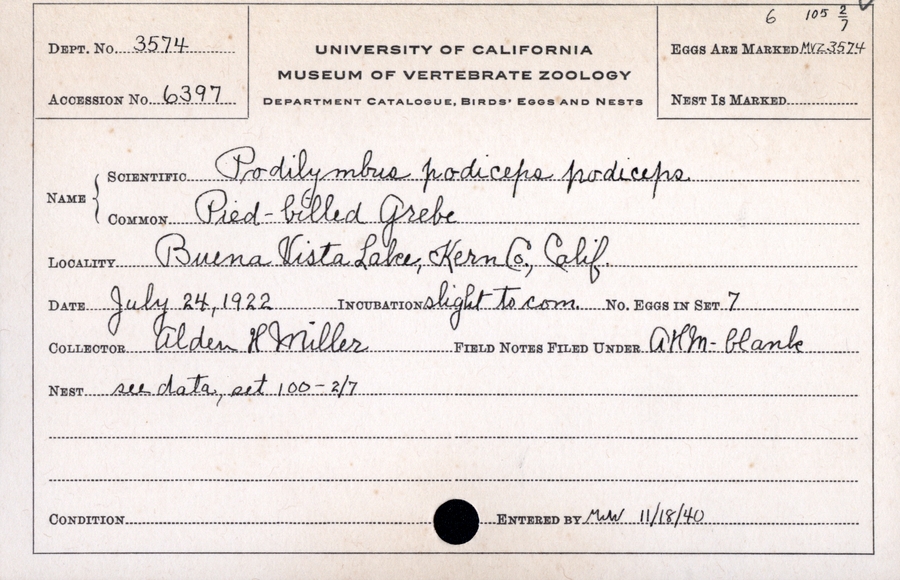 6 105 2/7
DEPT. NO. 3574
UNIVERSITY OF CALIFORNIA
EGGS ARE MARKED MVZ 3574
MUSEUM OF VERTEBRATE ZOOLOGY
ACCESSION NO. 6397
DEPARTMENT CATALOGUE, BIRDS' EGGS AND NESTS
NEST IS MARKED
NAME
SCIENTIFIC Podilymbus podiceps podiceps
COMMON Pied-billed Grebe
LOCALITY Buena Vista Lake, Kern Co., Calif.
DATE July 24, 1922 INCUBATION slight to com. NO. EGGS IN SET 7
COLLECTOR Alden H Miller FIELD NOTES FILED UNDER AHM- blank
NEST see data, set 100-2/7
CONDITION ENTERED BY 11/18/40